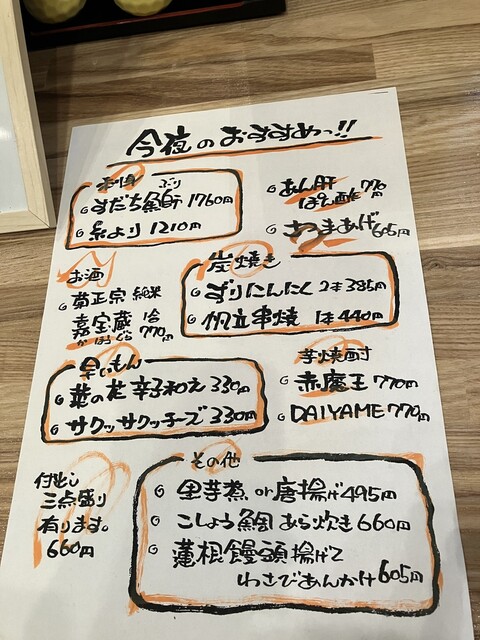 今夜のおすすめっ!!
お刺身
ぶり
すだち鰤 1760円
糸より 1210円
あん肝
ぽん酢 770円
さつまあげ 605円
お酒
菊正宗 純米
嘉宝蔵 1合
かほうぐら 770円
炭焼き
ずりにんにく 2本 385円
帆立串焼 1本 440円
早いもん
菜の花 辛子和え 330円
サクッサクッチーズ 330円
芋焼酎
赤魔王 770円
DAIYAME 770円
付出し
三点盛り
有ります。
660円
その他
里芋煮 or 唐揚げ 495円
こしょう鯛 あら炊き 660円
蓮根饅頭揚げて
わさびあんかけ 605円